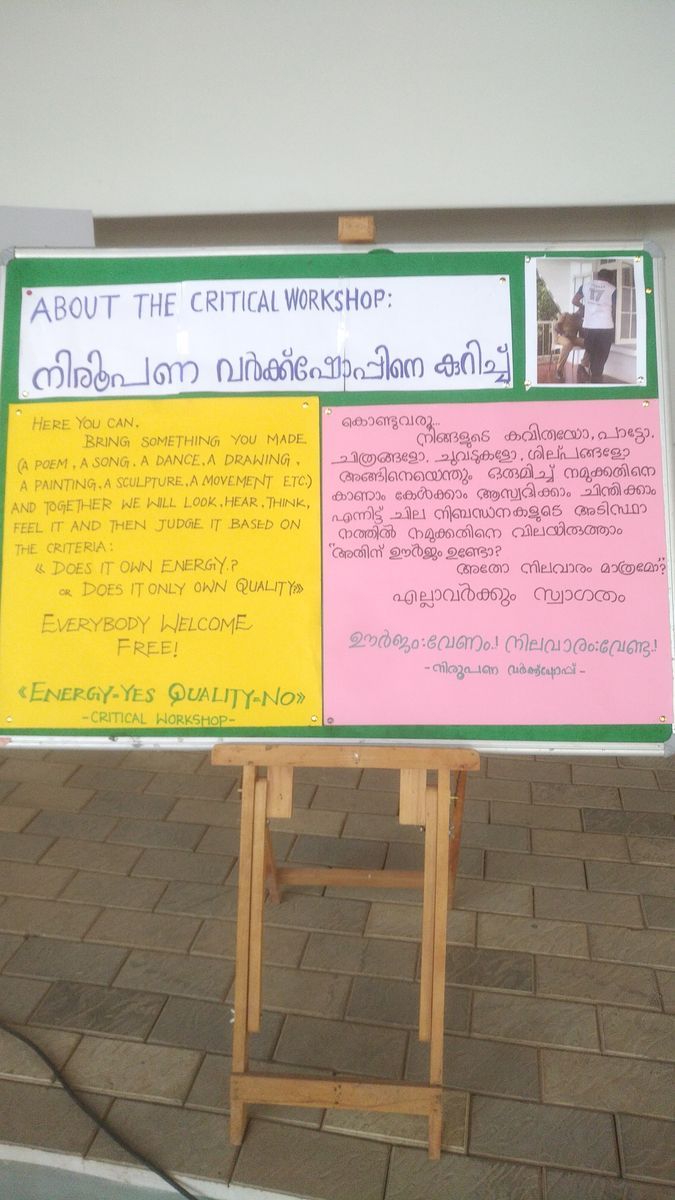 ABOUT THE CRITICAL WORKSHOP:
നിരൂപണ വർക്ക്ഷോപ്പിനെ കുറിച്ച്
HERE YOU CAN,
BRING SOMETHING YOU MADE
(A POEM, A SONG, A DANCE, A DRAWING,
A PAINTING, A SCULPTURE, A MOVEMENT ETC.)
AND TOGETHER WE WILL LOOK, HEAR, THINK,
FEEL IT AND THEN JUDGE IT BASED ON
THE CRITERIA:
« DOES IT OWN ENERGY.?
OR DOES IT ONLY OWN QUALITY»
EVERYBODY WELCOME
FREE!
«ENERGY=YES QUALITY=NO»
-CRITICAL WORKSHOP-
കൊണ്ടുവരൂ...
നിങ്ങളുടെ കവിതയോ, പാട്ടോ.
ചിത്രങ്ങളോ. ചുവടുകളോ. ശില്പങ്ങളോ
അങ്ങിനെയെന്തും ഒരുമിച്ച് നമുക്കതിനെ
കാണാം കേൾക്കാം ആസ്വദിക്കാം ചിന്തിക്കാം
എന്നിട്ട് ചില നിബന്ധനകളുടെ അടിസ്ഥാ
നത്തിൽ നമുക്കതിനെ വിലയിരുത്താം
"അതിന് ഊർജം ഉണ്ടോ?
അതോ നിലവാരം മാത്രമോ?"
എല്ലാവർക്കും സ്വാഗതം
ഊർജം:വേണം.! നിലവാരം:വേണ്ട.!
-നിരൂപണ വർക്ക്ഷോപ്പ്-
17